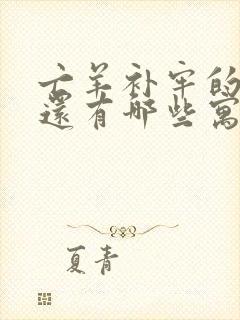 亡羊补牢的
还有哪些寓
夏青